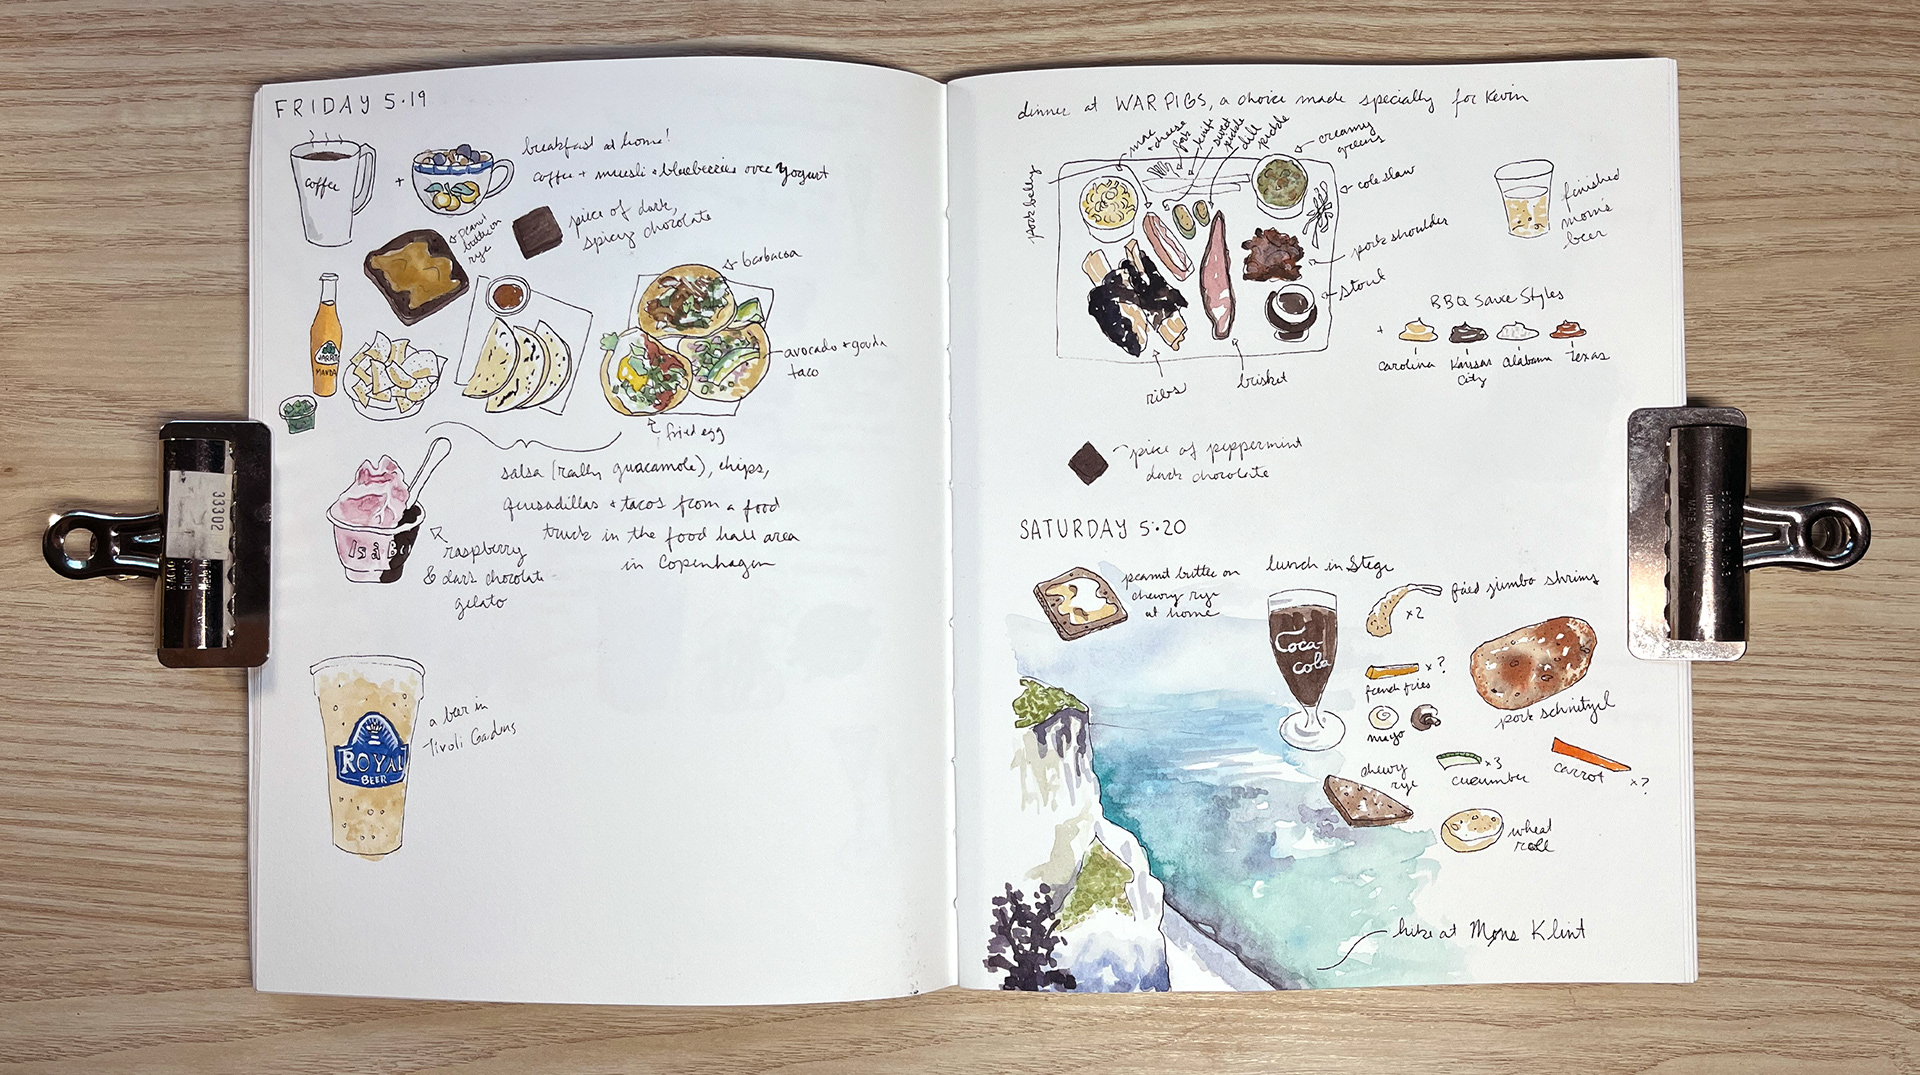 FRIDAY 5.19
coffee
+
breakfast at home!
coffee + muesli + blueberries over yogurt
peanut
butter on
rye
piece of dark,
spicy chocolate
barbacoa
JARRI
MANDA
avocado + gouda
taco
fried egg
salsa (really guacamole), chips,
quesadillas + tacos from a food
truck in the food hall area
in Copenhagen
raspberry
& dark chocolate
gelato
a beer in
Tivoli Gardens
ROYAL
BEER
dinner at WARPIGS, a choice made specially for Kevin
mac
+ cheese
fork
knife
sweet
pickle
dill
pickle
creamy
greens
pork belly
coleslaw
pork shoulder
stout
ribs
brisket
finished
mom's
beer
BBQ Sauce Styles
+
Carolina
Kansas
City
Alabama
Texas
piece of peppermint
dark chocolate
SATURDAY 5.20
peanut butter on
chewy rye
at home
lunch in Stege
Coca-
cola
fried jumbo shrimp
x2
x?
french fries
mayo
pork schnitzel
chewy
rye
x3
cucumber
carrot
x?
wheat
roll
hike at Møns Klint
33302